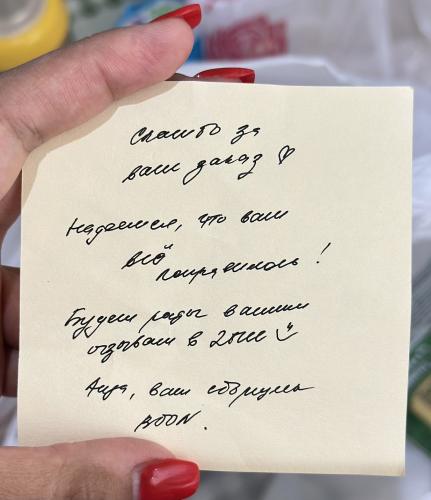 Спасибо за
ваш заказ ♡
Надеемся, что вам
всё
понравилось !
Будем рады вашим
отзывам в 2ГИС
ваш сборщик